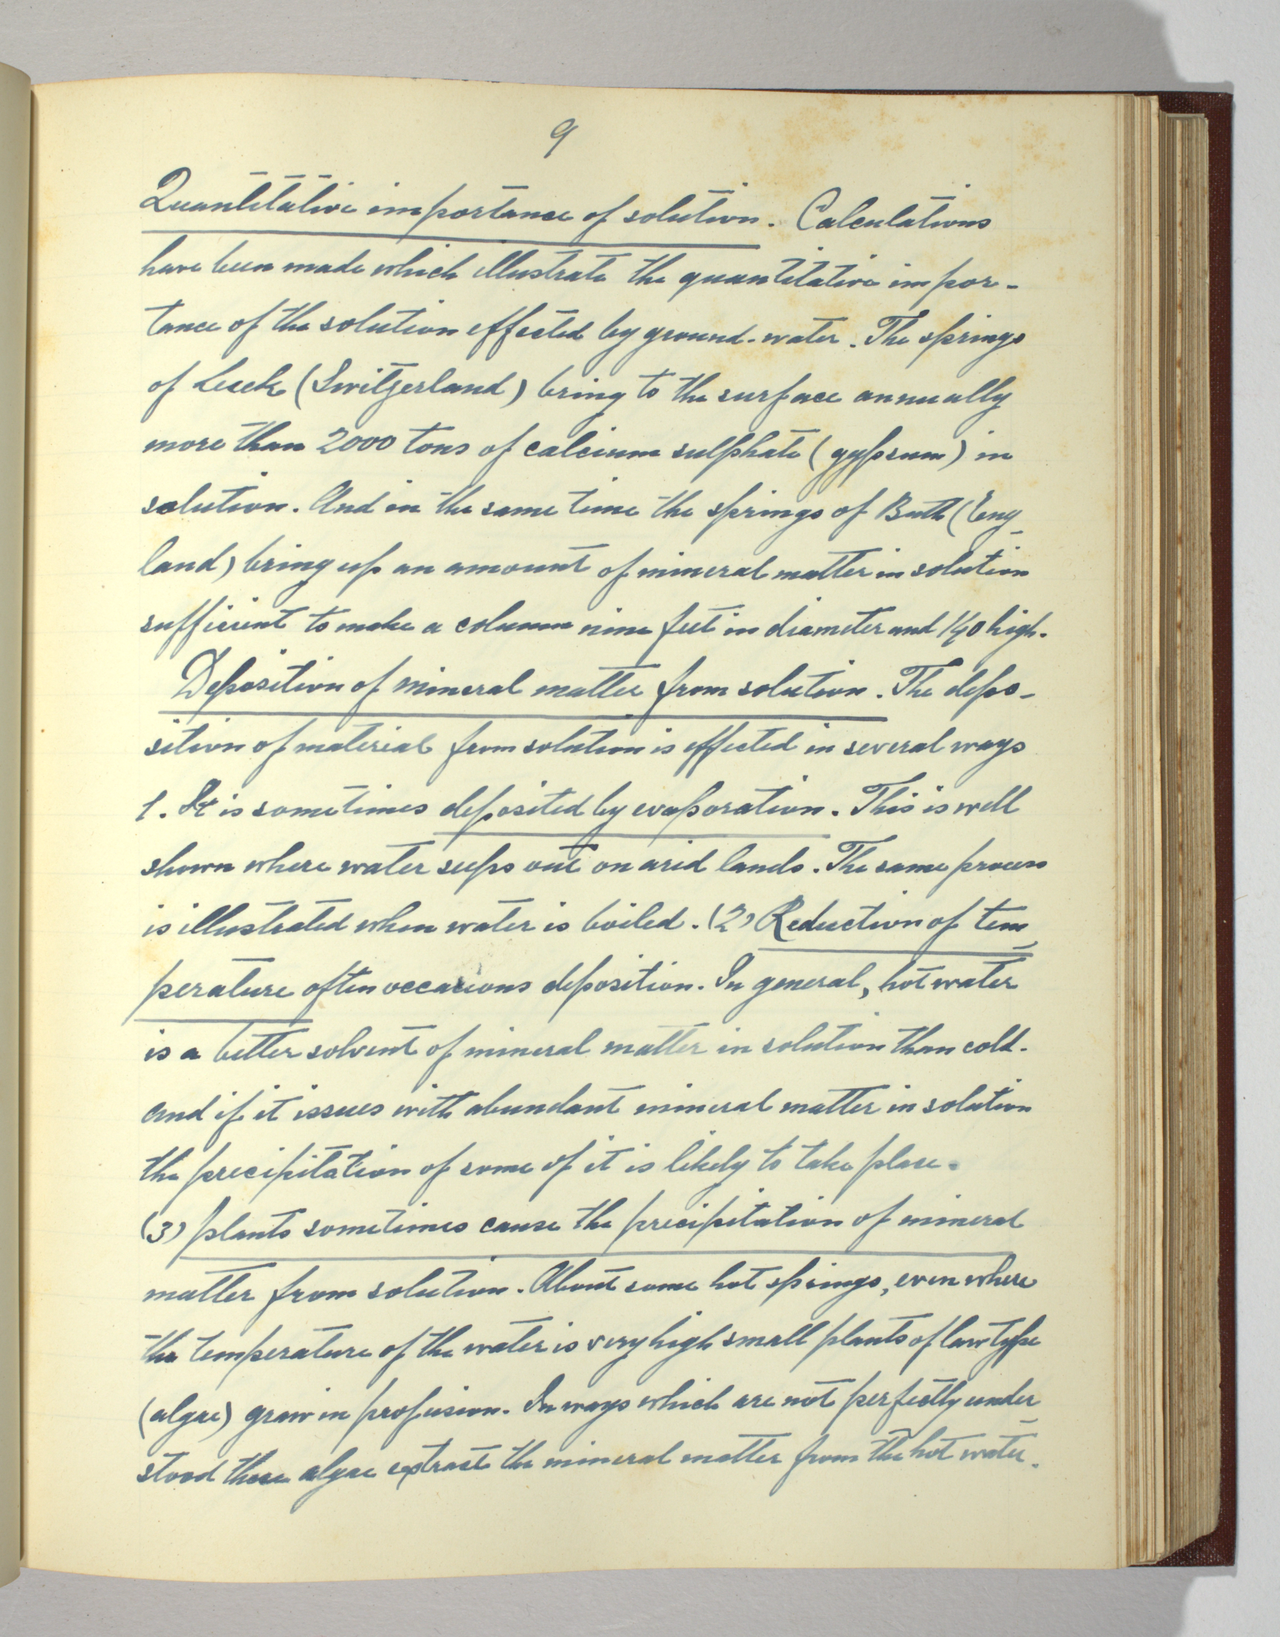 9
Quantitative importance of solution. Calculations
have been made which illustrate the quantitative impor-
tance of the solution effected by ground-water. The springs
of Leuk (Switzerland) bring to the surface annually
more than 2000 tons of calcium sulphate (gypsum) in
solution. And in the same time the springs of Bath (Eng-
land) bring up an amount of mineral matter in solution
sufficient to make a column nine feet in diameter and 140 high.
Deposition of mineral matter from solution. The depo-
sition of material from solution is effected in several ways
1. It is sometimes deposited by evaporation. This is well
shown where water seeps out on arid lands. The same process
is illustrated when water is boiled. (2) Reduction of tem-
perature often occasions deposition. In general, hot water
is a better solvent of mineral matter in solution than cold.
and if it issues with abundant mineral matter in solution
the precipitation of some of it is likely to take place.
(3) plants sometimes cause the precipitation of mineral
matter from solution. About some hot springs, even where
the temperature of the water is very high small plants of low type
(algae) grow in profusion. In ways which are not perfectly under-
stood these algae extract the mineral matter from the hot water.